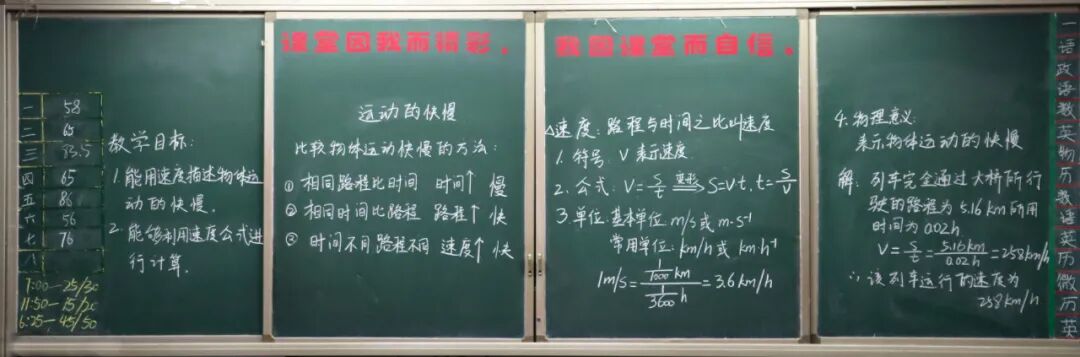 课堂因我而精彩。
我因课堂而自信。
一 58
二 65
三 83.5
四 65
五 86
六 56
七 76
八
7:00—25/30
11:50—15/20
6:25—45/50
教学目标:
1. 能用速度描述物体运
动的快慢。
2. 能够利用速度公式进
行计算.
运动的快慢
比较物体运动快慢的方法:
① 相同路程比时间 时间↑ 慢
② 相同时间比路程 路程↑ 快
③ 时间不同路程不同 速度↑ 快
△速度: 路程与时间之比叫速度
1. 符号: V 表示速度.
2. 公式: V=s/t 变形→ S=Vt, t=s/V
3. 单位: 基本单位: m/s 或 m·s⁻¹
常用单位: km/h 或 km·h⁻¹
1m/s = (1/1000 km)/(1/3600 h) = 3.6km/h
4. 物理意义:
表示物体运动的快慢
解: 列车完全通过大桥所行
驶的路程为5.16km所用
时间为0.02h
V=s/t=5.16km/0.02h=258km/h
∴ 该列车运行的速度为
258km/h
一
语
政
语
数
英
物
历
数
英
历
微
历
英